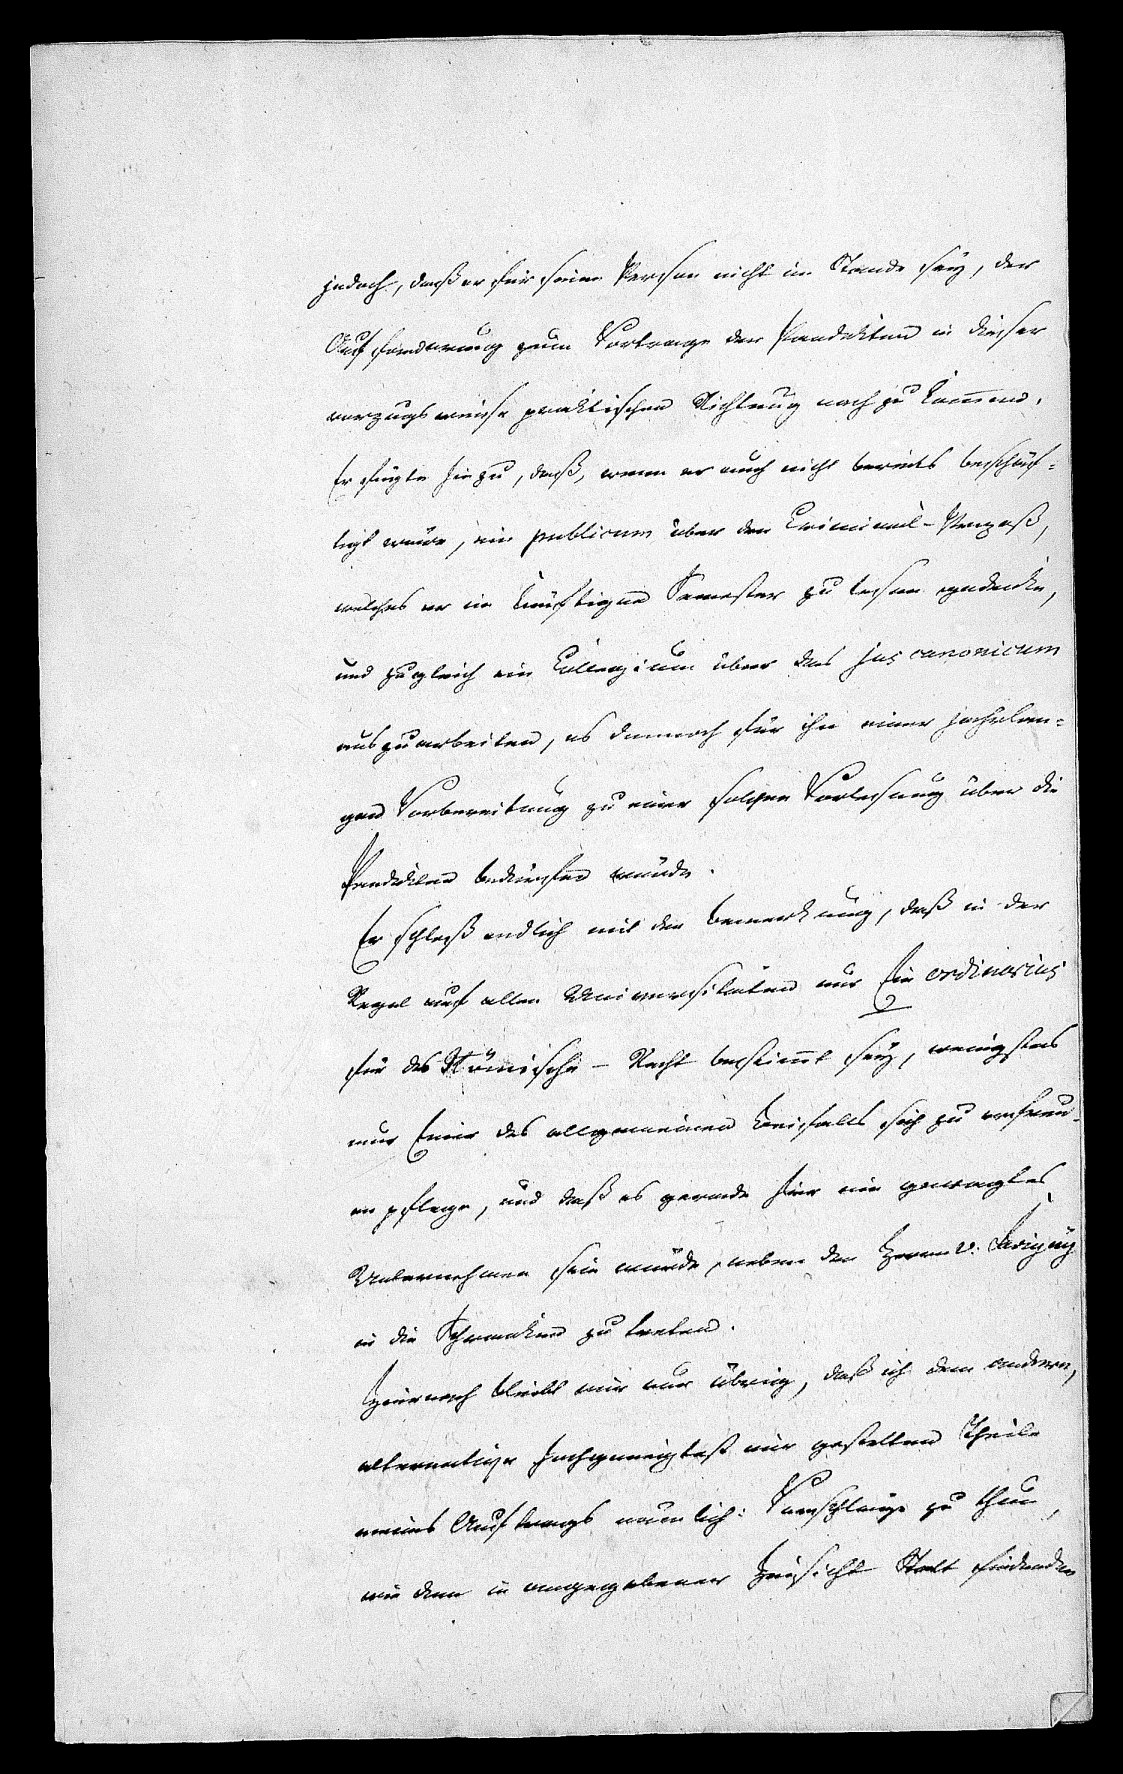 jedoch, daß er für seine Person nicht im Stande sey, der
Aufforderung zum Vortrage der Pandekten in dieser
vorzugsweise praktischen Richtung nach zu kommen.
Er fügte hinzu, daß, wenn er auch nicht bereits beschäf-
tigt wäre, ein publicum über den Criminal-Prozeß,
welches er im künftigen Semester zu lesen gedenke,
und zugleich ein Collegium über das jus canonicum
auszuarbeiten, es dennoch für ihn einer jahrelan-
gen Vorbereitung zu einer solchen Vorlesung über die
Pandekten bedürfen würde.
Er schloß endlich mit der Bemerkung, daß in der
Regel auf allen Universitäten nur Ein ordinarius
für das Römische-Recht bestimmt sey, wenigstens
nur Einer des allgemeinen Beifalls sich zu erfreu-
en pflege, und daß es gerade hier ein gewagtes
Unternehmen sein würde, neben den Herrn v. Savigny
in die Schranken zu treten.
Hiernach bleibt mir nur übrig, daß ich dem andern,
alternative hochgeneigtest mir gestellten Theile
meines Auftrags nämlich: Vorschläge zu thun,
wie dem in angegebener Hinsicht Statt findenden